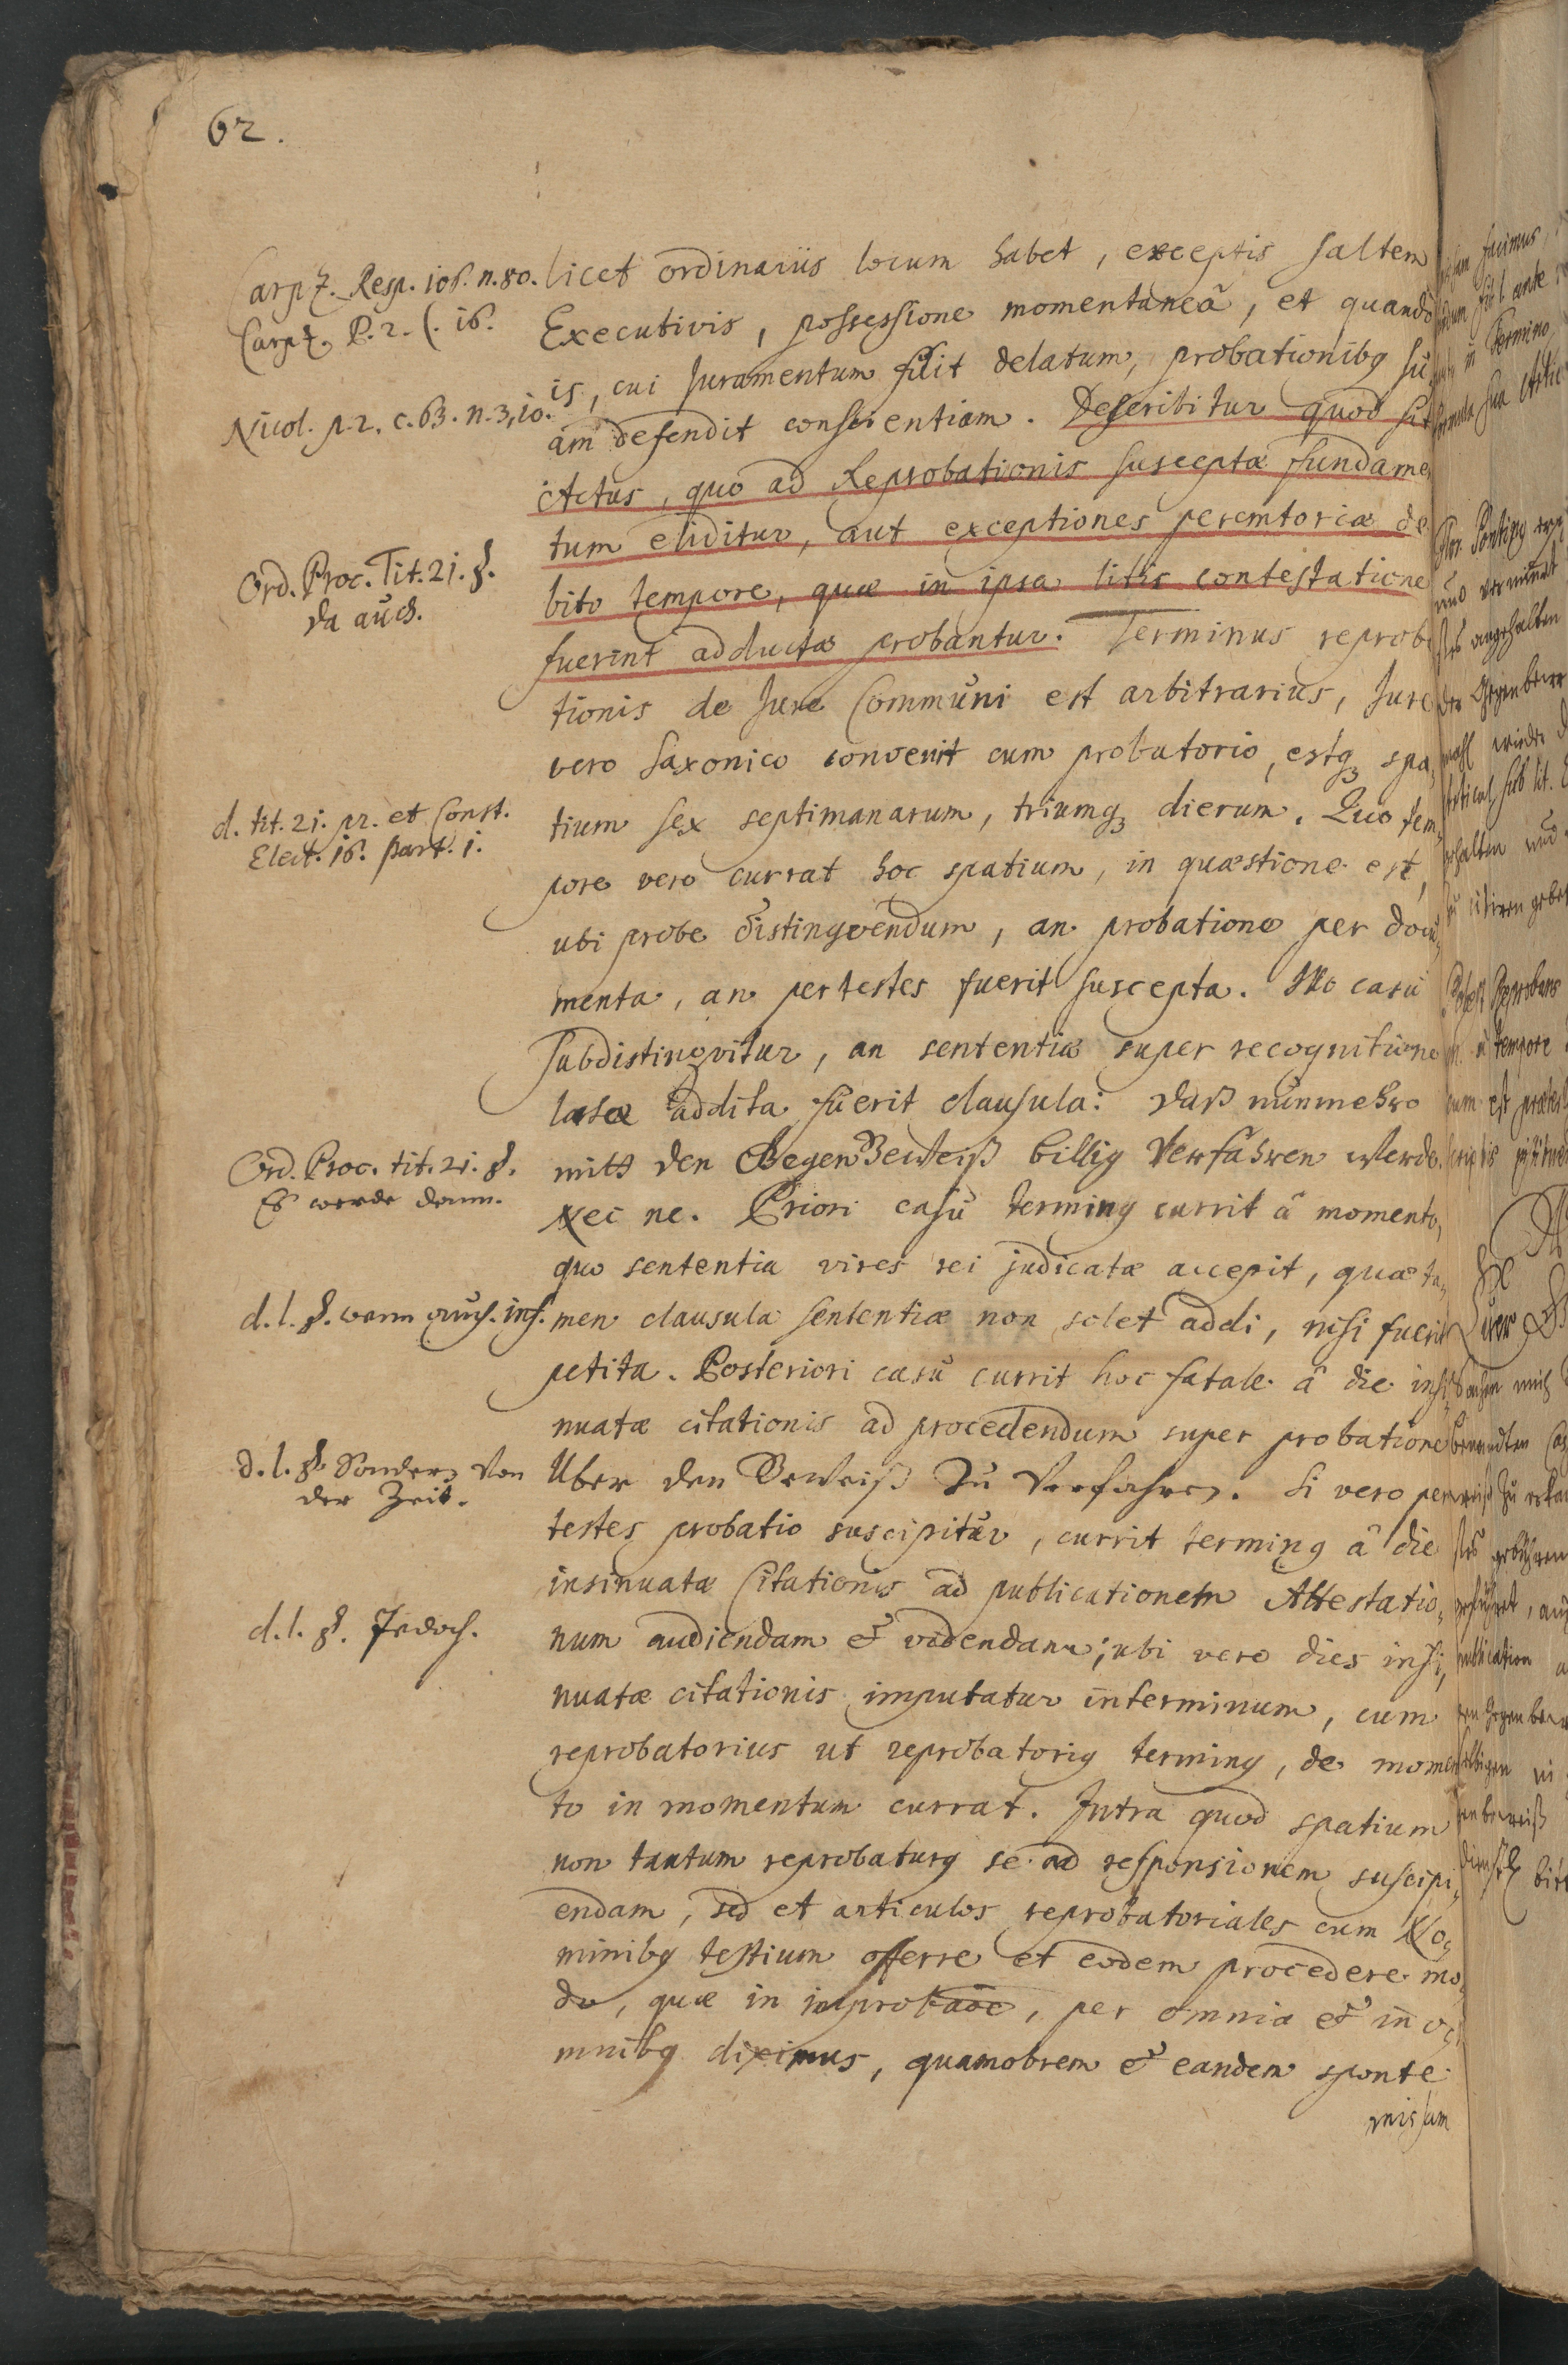 62.
Carpz. Resp. 108. n. 80.
Carpz. P. 2. C. 16.
Nicol. p. 2. c. 63. n. 3, 10.
Ord. Proc. Tit. 21. §.
da auch.
d. tit. 21. pr. et Const.
Elect. 16. part. 1.
Ord. Proc. tit. 21. §.
Es werde dann.
d. l. §. wenn auch. inf.
d. l. §. Sondern von
der Zeit.
d. l. §. Jedoch.
licet ordinariis locum habet, exceptis saltem
Executivis, possessione momentaneâ, et quando
is, cui Juramentum fuit delatum, probationibq su,
am defendit conscientiam. Describitur quod sit
Actus, quo ad Reprobationis susceptæ fundamen
tum eliditur, aut exceptiones peremtoriæ de
bito tempore, quæ in ipsa litis contestatione
fuerint adductæ probantur. Terminus reproba
tionis de Jure Communi est arbitrarius, Jure
vero Saxonico convenit cum probatorio, estq3 spa,
tium sex septimanarum, triumq3 dierum. Quo tem,
pore vero currat hoc spatium, in quæstione est,
ubi probe distingvendum, an probatione per docu,
menta, an per testes fuerit suscepta. Illo casu
subdistingvitur, an sententiæ super recognitione
latæ addita fuerit clausula: daß nunmehro
mitt den GegenBeweiß billig Verfahren werde.
nec ne. Priori casu terminq currit â momento,
quo sententia vires rei judicatæ accepit, quæ ta,
men clausula sententiæ non solet addi, nisi fuerit
petita. Posteriori casu currit hoc fatale â die insi,
nuatæ citationis ad procedendum super probatione
Uber den Beweiß zu Verfahren. Si vero per
testes probatio suscipitur, currit terminq â die
insinuatæ Citationis ad publicationem Attestatio,
num audiendam & videndam; ubi vero dies insi,
nuatæ citationis imputatur in terminum, cum
reprobatorius ut reprobatoriq terminq, de momen
to in momentum currat. Intra quod spatium
non tantum reprobaturq se ad responsionem suscipi,
endam, sed et articulos reprobatoriales cum No,
minibq testium offerre et eodem procedere mo,
do, quæ in improbaõe, per omnia & in o,
mnibq diximus, quamobrem & eandem sponte
missam